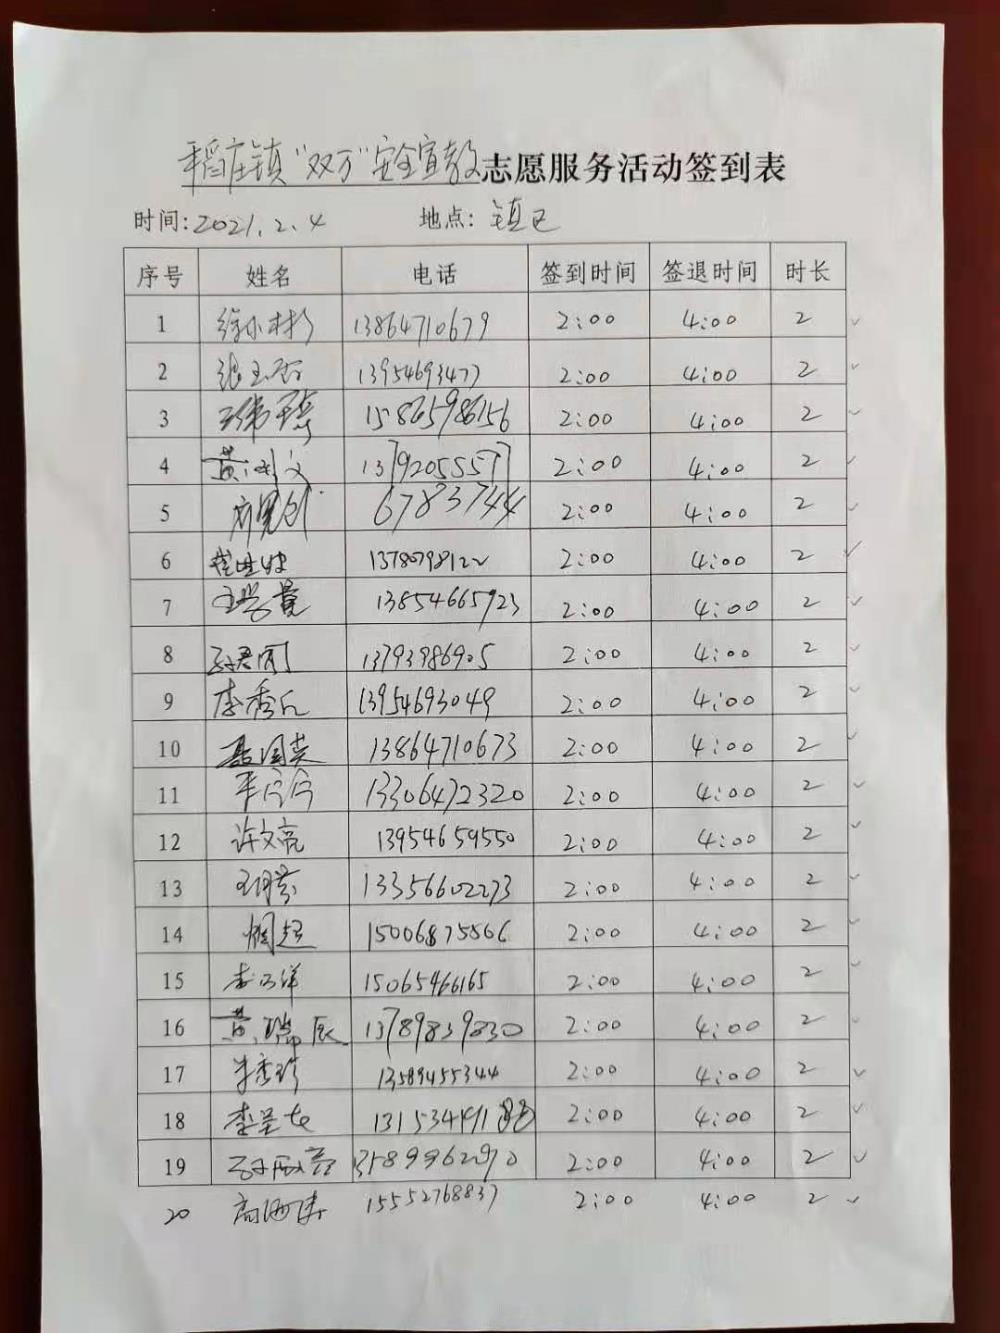 稻庄镇"双万"安全宣教志愿服务活动签到表
时间:2021.2.4 地点:镇区
序号 姓名 电话 签到时间 签退时间 时长
1 徐小彬 13864710679 2:00 4:00 2
2 13954693477 2:00 4:00 2
3 15865986156 2:00 4:00 2
4 2:00 4:00 2
5 6783744 2:00 4:00 2
6 13780798122 2:00 4:00 2
7 13854665923 2:00 4:00 2
8 孙君刚 13793986905 2:00 4:00 2
9 13954693049 2:00 4:00 2
10 聂国英 13864710673 2:00 4:00 2
11 13306472320 2:00 4:00 2
12 许文亮 13954659550 2:00 4:00 2
13 13356602273 2:00 4:00 2
14 2:00 4:00 2
15 15065466165 2:00 4:00 2
16 黄瑞辰 13789839830 2:00 4:00 2
17 13589455344 2:00 4:00 2
18 2:00 4:00 2
19 13589962970 2:00 4:00 2
20 高海涛 15552768837 2:00 4:00 2